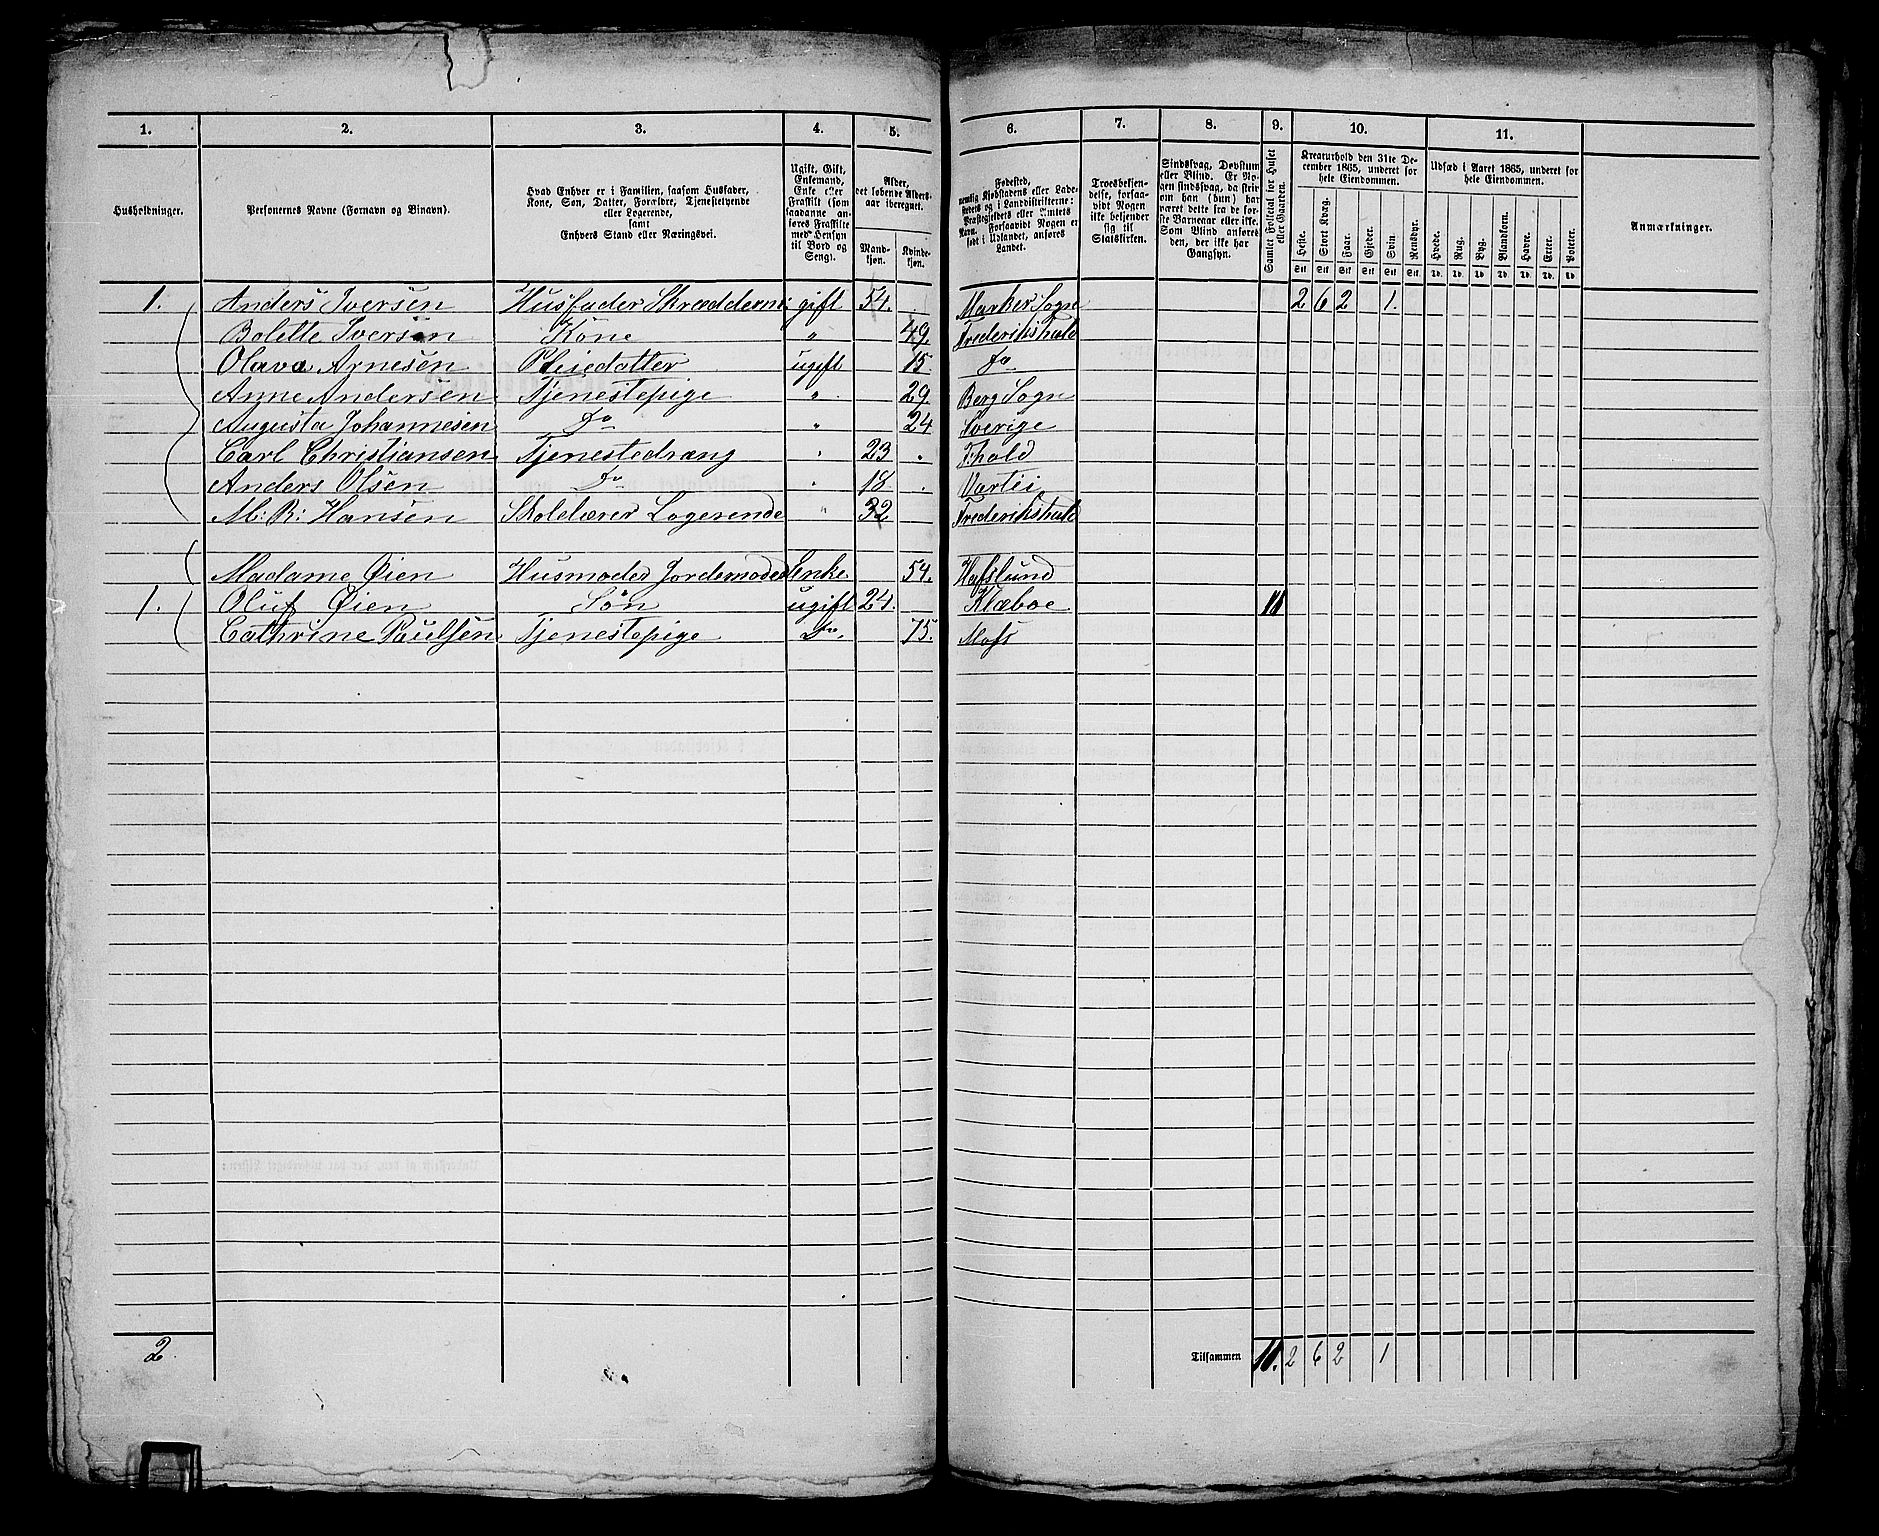 1. 2. 3. 4. 5. 6. 7. 8. 9. 10. 11.
Husholdninger.
Personernes Navne (Fornavn og Binavn).
Hvad Enhver er i Familien, saasom Husfader,
Kone, Søn, Datter, Forældre, Tjenestetyende
eller Logerende,
samt
Enhvers Stand eller Næringsvei.
Ugift, Gift,
Enkemand,
Enke eller
Fraskilt (som
saadanne an-
føres Fraskilte
med Hensyn
til Bord og
Seng).
Alder,
det løbende Alders-
aar iberegnet.
Mand-
kjøn.
Kvinde-
kjøn.
Fødested,
nemlig Kjøbstadens eller Lade-
stedets og i Landdistrikterne:
Præstegjeldets eller Amtets
Navn. Forsaavidt Nogen er
født i Udlandet, anføres
Landet.
Troesbekjen-
delse, forsaa-
vidt Nogen
ikke bekjender
sig til
Statskirken.
Sindssvag, Døvstum
eller Blind. Er No-
gen sindssvag, da skriv
om han (hun) har
været dette fra de før-
ste Barneaar eller ikke.
Som Blind anføres
den, der ikke har
Gangsyn.
Samlet Folketal for Huset
eller Gaarden.
Kreaturhold den 31te De-
cember 1865, underet for
hele Eiendommen.
Heste. Stort Kvæg. Faar. Gjeder. Svin. Rensdyr.
Stk Stk Stk Stk Stk Stk
Udsæd i Aaret 1865, underet for
hele Eiendommen.
Hvede. Rug. Byg. Blandkorn. Havre. Erter. Poteter.
Td. Td. Td. Td. Td. Td. Td.
Anmærkninger.
1. Anders Iversen Husfader Skræderm: gift 54. Marker Sogn 2 6 2 1.
Bolette Iversen Kone " 49. Frederikshald
Olava Arnesen Pleiedatter ugift 15 Do
Anne Andersen Tjenestepige " 29. Berg Sogn
Augusta Johannesen Do " 24 Sverige
Carl Christiansen Tjenestedræng " 23 F:hald
Anders Olsen Do " 18. Vartei
M: R: Hansen Skolelærer Logerende " 32 Frederikshald
Madame Øien Husmoder Jordemoder Enke 54. Hafslund
1. Oluf Øien Søn ugift 24. Klæboe 11
Cathrine Paulsen Tjenestepige Do. 75. Moss
2. Tilsammen 11. 2 6 2 1